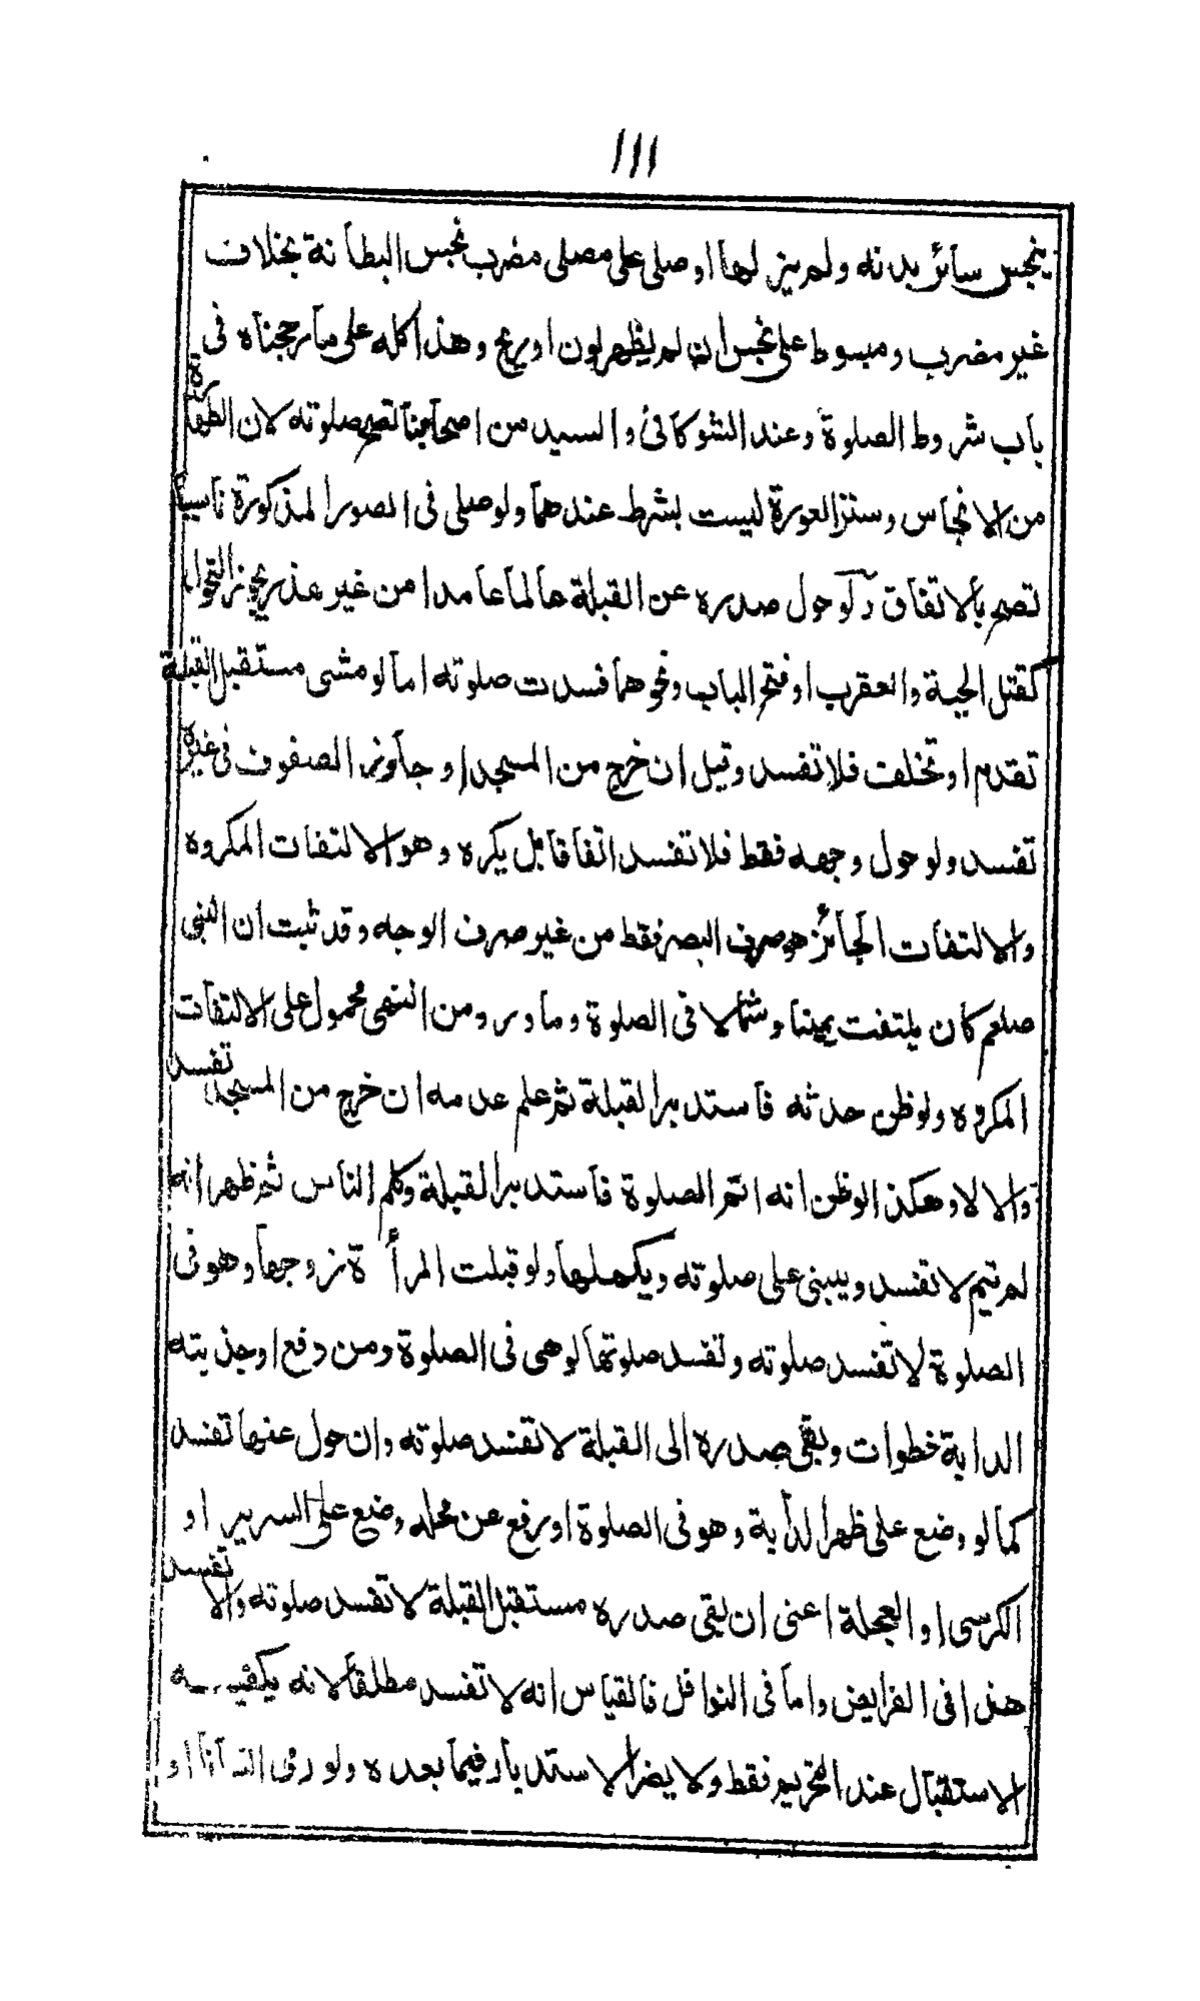 ١١١
ينجس سائر بدنه ولم يزلها او صلى على مصلى مضرب نجس البطانة بخلاف
غير مضرب ومبسوط على نجس ان لم يظهر لون او ريح وهذا كله على ما رجحناه فى
باب شروط الصلوة وعند الشوكانى والسيد من اصحابنا تصح صلوته لان الطهارة
من الانجاس وستر العورة ليست بشرط عندهما ولو صلى فى الصور المذكورة ناسيا
تصح بالاتفاق ولو حول صدره عن القبلة عالما عامدا من غير عذر يجوز التحول
كقتل الحية والعقرب او فتح الباب ونحوهما فسدت صلوته اما لو مشى مستقبل القبلة
تقدم او تخلف فلا تفسد وقيل ان خرج من المسجد او جاوز الصفوف فى غيره
تفسد ولو حول وجهه فقط فلا تفسد اتفاقا بل يكره وهو الالتفات المكروه
والالتفات الجائز هو صرف البصر فقط من غير صرف الوجه وقد ثبت ان النبى
صلعم كان يلتفت يمينا وشمالا فى الصلوة وما ورد من النهى محمول على الالتفات
المكروه ولو ظن حدثه فاستدبر القبلة ثم علم عدمه ان خرج من المسجد تفسد
والا لا وهكذا لو ظن انه اتم الصلوة فاستدبر القبلة وكلم الناس ثم ظهر انه
لم تيم لا تفسد ويبنى على صلوته ويكملها ولو قبلت المرأة زوجها وهو فى
الصلوة لا تفسد صلوته وتفسد صلوتها لو هى فى الصلوة ومن دفع او جذبته
الدابة خطوات وبقى صدره الى القبلة لا تفسد صلوته وان حول عنها تفسد
كما لو وضع على ظهر الدابة وهو فى الصلوة او رفع عن محله وضع على السرير او
الكرسى او العجلة اعنى ان بقى صدره مستقبل القبلة لا تفسد صلوته والا تفسد
هذا فى الفرايض واما فى النوافل فالقياس انه لا تفسد مطلقا لانه يكفيه
الاستقبال عند التحريم فقط ولا يضر الاستدبار فيما بعده ولو رمى او